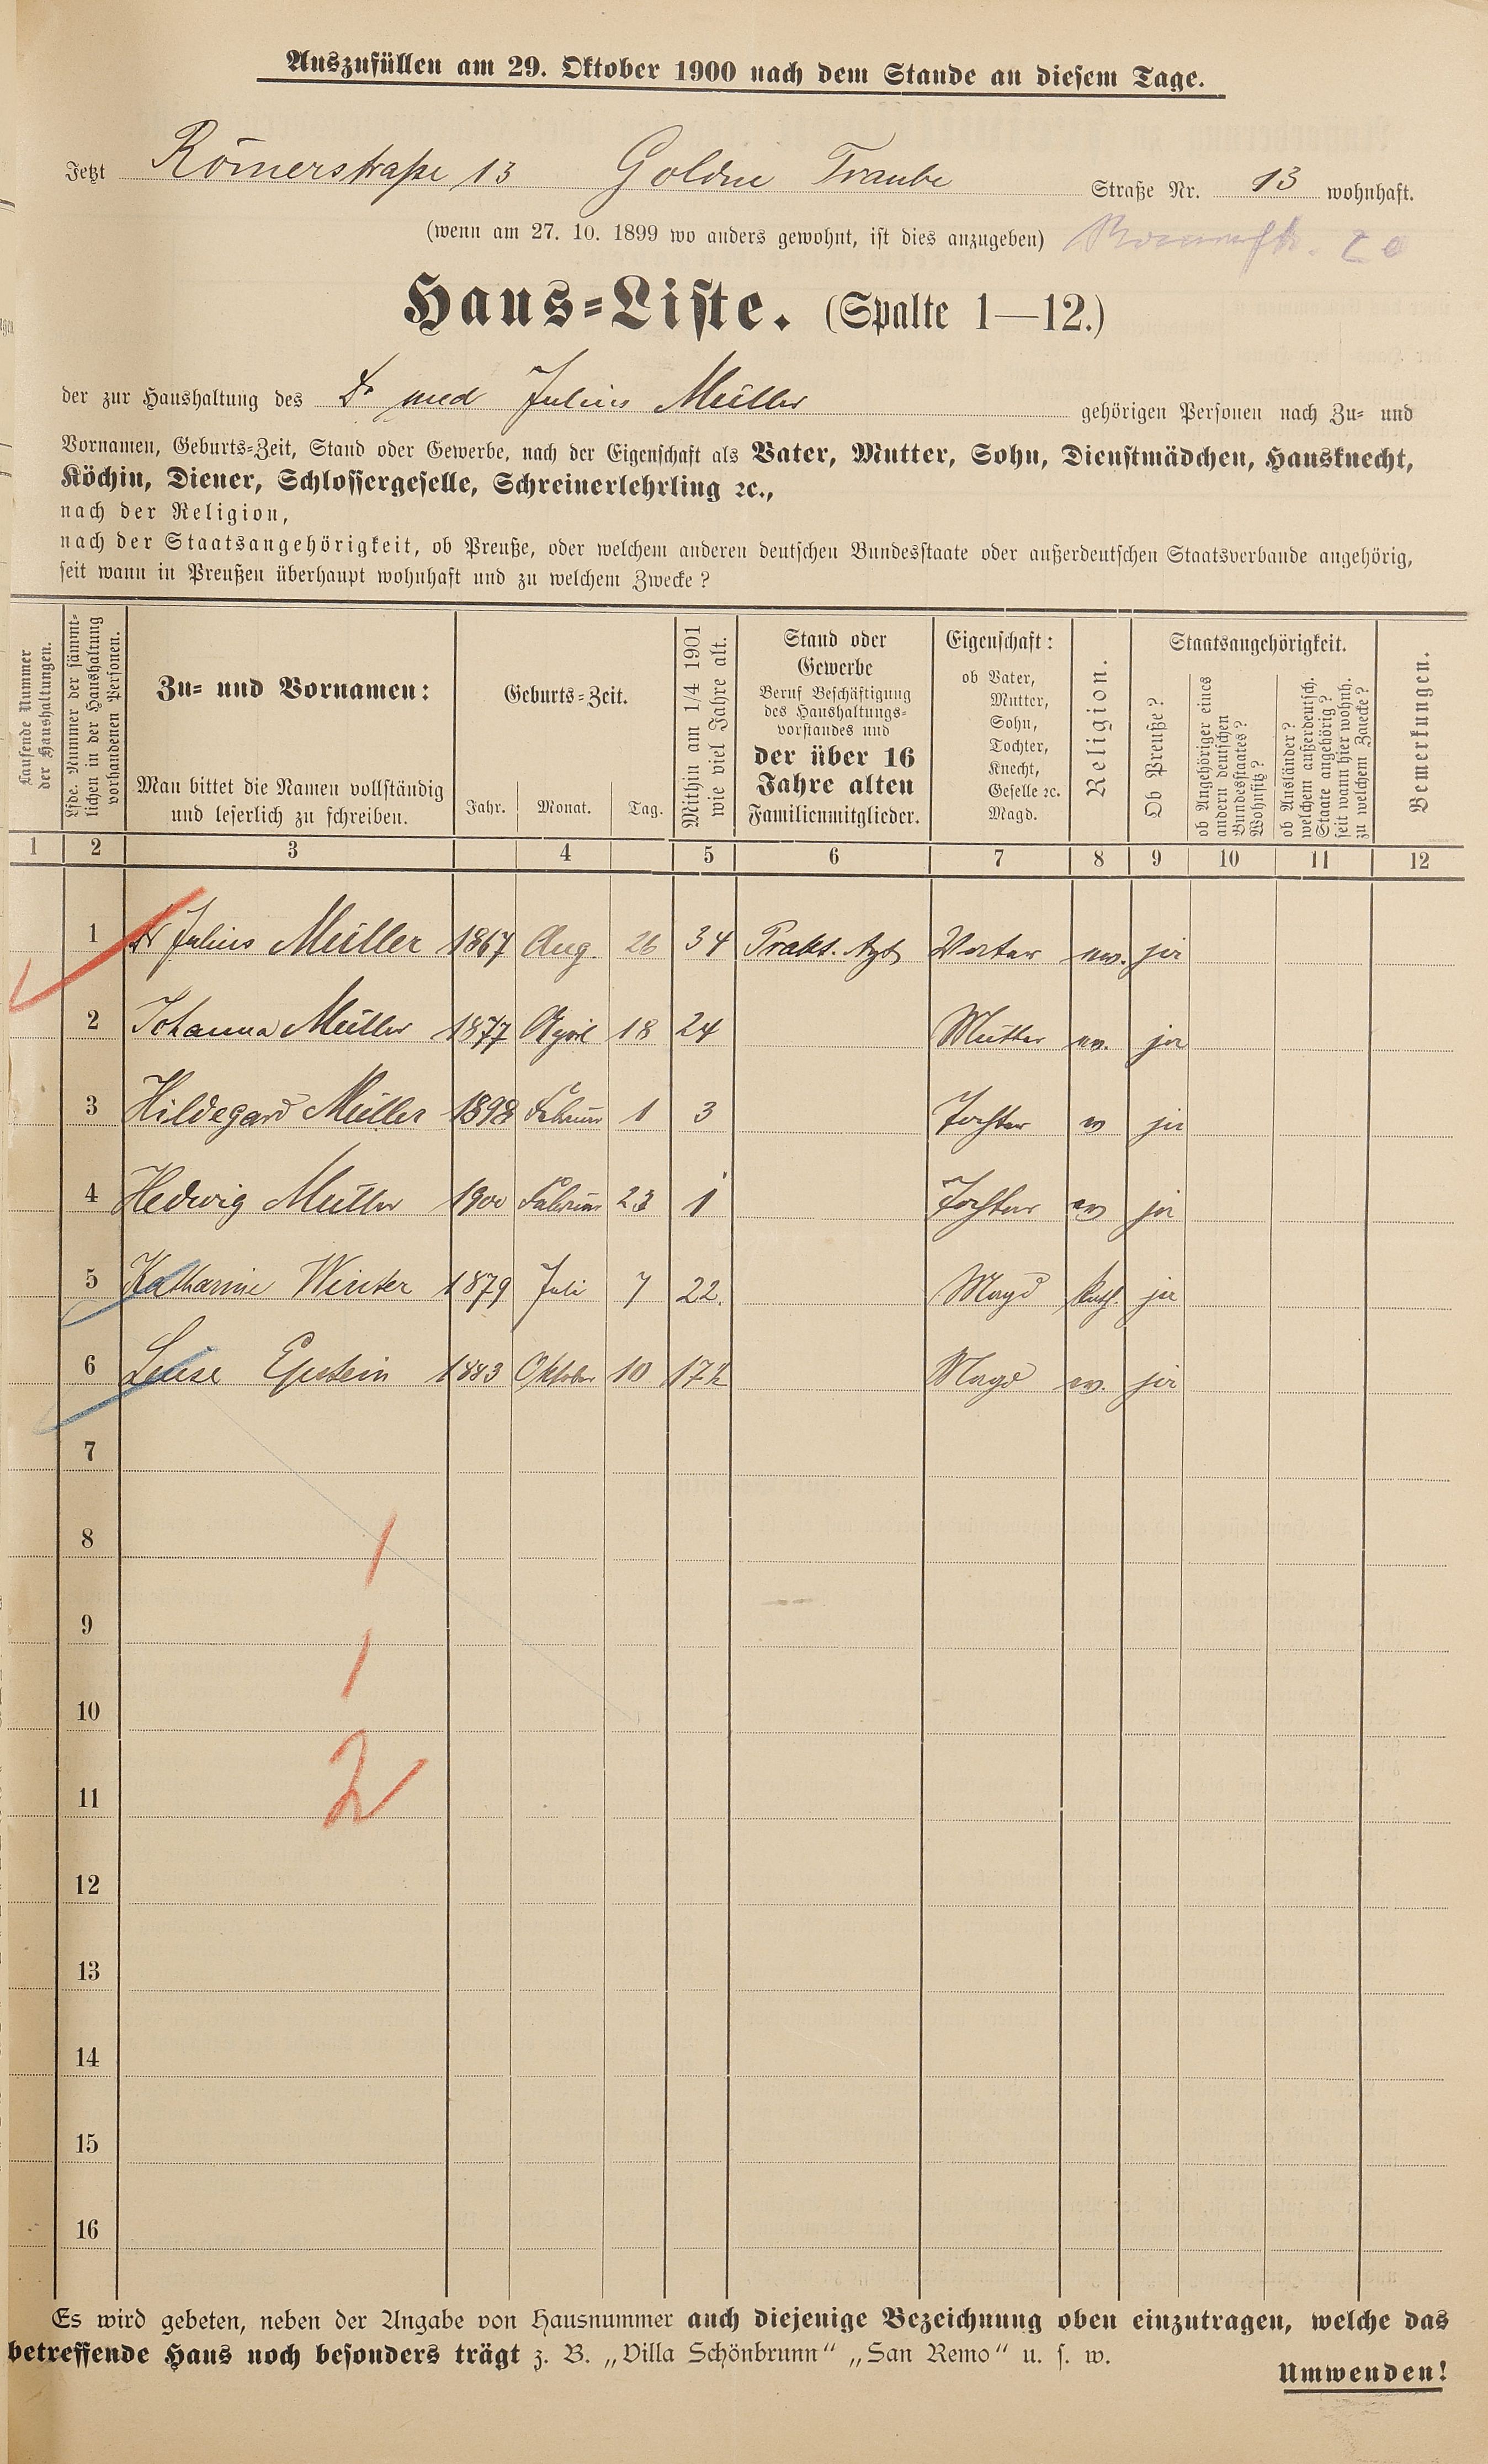 Auszufüllen am 29. Oktober 1900 nach dem Stande an diesem Tage.
Jetzt Römerstraße 13 Goldne Traube Straße Nr. 13 wohnhaft.
(wenn am 27. 10. 1899 wo anders gewohnt, ist dies anzugeben)
Haus-Liste. (Spalte 1—12.)
der zur Haushaltung des Dr med Julius Müller gehörigen Personen nach Zu- und
Vornamen, Geburts-Zeit, Stand oder Gewerbe, nach der Eigenschaft als Vater, Mutter, Sohn, Dienstmädchen, Hausknecht,
Köchin, Diener, Schlossergeselle, Schreinerlehrling ꝛc.,
nach der Religion,
nach der Staatsangehörigkeit, ob Preuße, oder welchem anderen deutschen Bundesstaate oder außerdeutschen Staatsverbande angehörig,
seit wann in Preußen überhaupt wohnhaft und zu welchem Zwecke?
Laufende Nummer
der Haushaltungen.
Lfde. Nummer der sämmt-
lichen in der Haushaltung
vorhandenen Personen.
Zu- und Vornamen:
Man bittet die Namen vollständig
und leserlich zu schreiben.
Geburts-Zeit.
Jahr. Monat. Tag.
Mithin am 1/4 1901
wie viel Jahre alt.
Stand oder
Gewerbe
Beruf Beschäftigung
des Haushaltungs-
vorstandes und
der über 16
Jahre alten
Familienmitglieder.
Eigenschaft:
ob Vater,
Mutter,
Sohn,
Tochter,
Knecht,
Geselle ꝛc.
Magd.
Religion.
Staatsangehörigkeit.
Ob Preuße?
ob Angehöriger eines
andern deutschen
Bundesstaates?
Wohnsitz?
ob Ausländer?
welchem außerdeutsch.
Staate angehörig?
seit wann hier wohnh.
zu welchem Zwecke?
Bemerkungen.
1 2 3 4 5 6 7 8 9 10 11 12
1 Dr Julius Müller 1867 Aug. 26 34 Prakt. Arzt Vater ev. ja
2 Johanna Müller 1877 April 18 24 Mutter ev. ja
3 Hildegard Müller 1898 Februar 1 3 Tochter ev ja
4 Hedwig Müller 1900 Februar 23 1 Tochter ev ja
5 Katharine Winter 1879 Juli 7 22. Magd kath. ja
6 Luise Epstein 1883 Oktober 10 17½ Magd ev. ja
7
8 1
9 1
10
11 2
12
13
14
15
16
Es wird gebeten, neben der Angabe von Hausnummer auch diejenige Bezeichnung oben einzutragen, welche das
betreffende Haus noch besonders trägt z. B. „Villa Schönbrunn“ „San Remo“ u. s. w.
Umwenden!